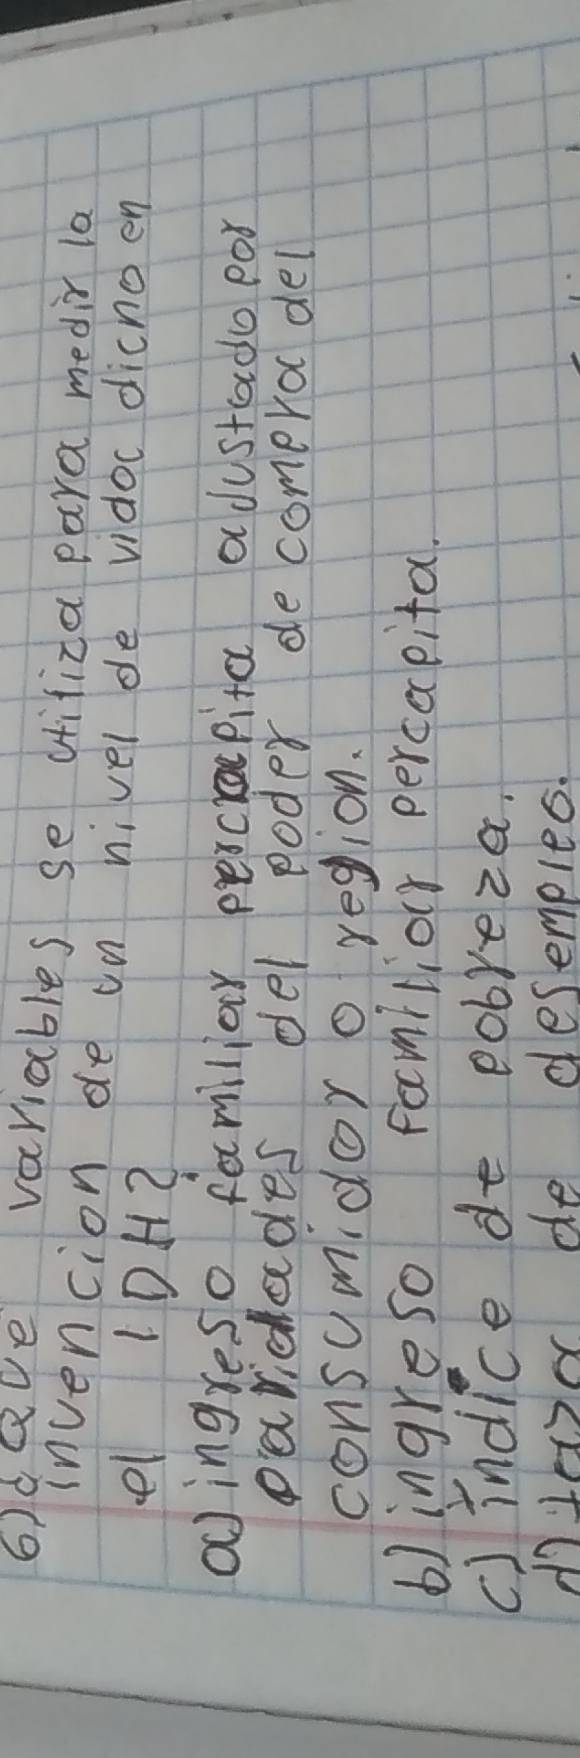 6) ¿Que variables se utiliza para medir la
invencion de un nivel de vidac dicno en
el IDH?
a) ingreso familiar percapita adustado por
paridades del poder de compra del
consumidor o region.
b) ingreso familiar percapita.
c) indice de pobreza.
d) taza de desempleo.